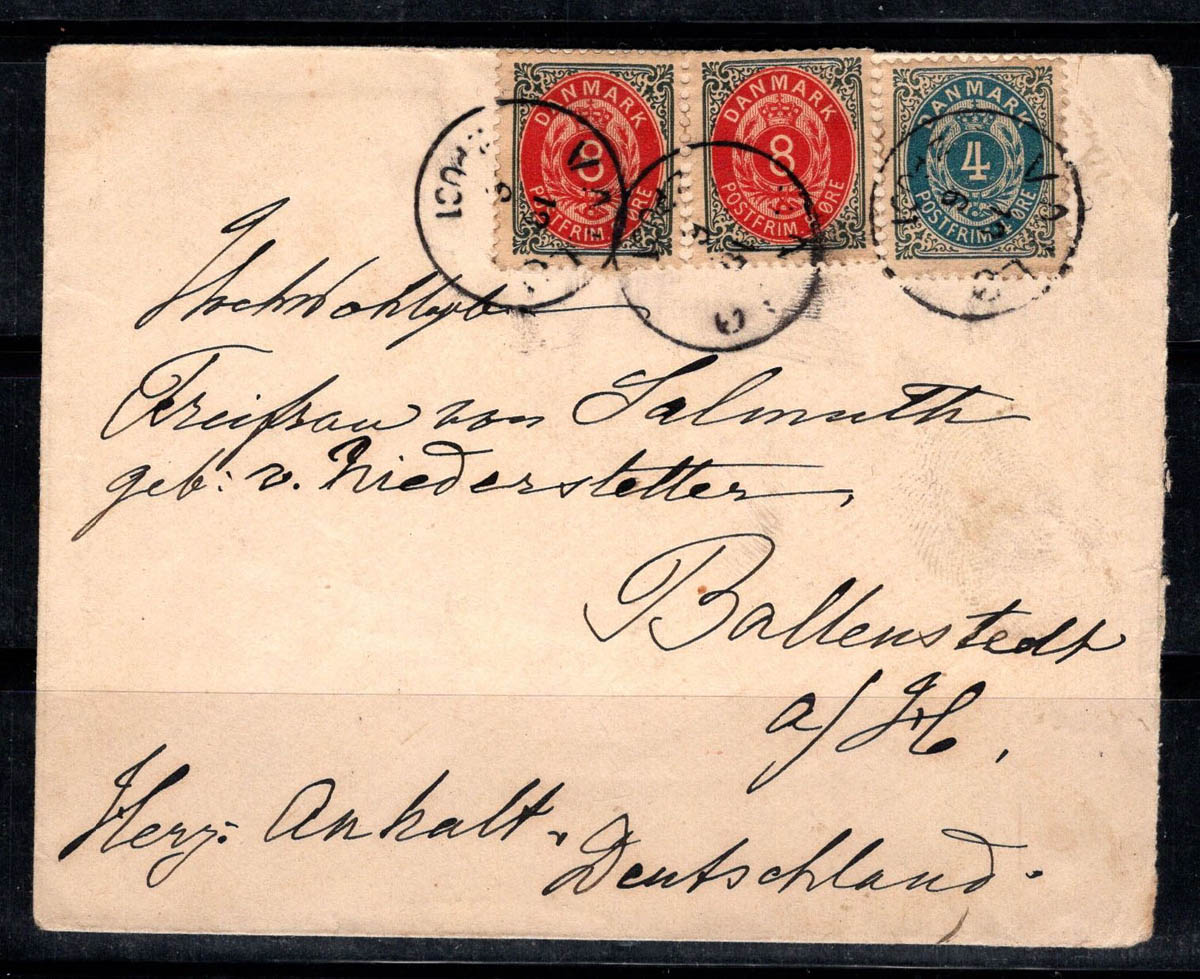 DANMARK
8
POSTFRIM. ØRE
DANMARK
8
POSTFRIM. ØRE
DANMARK
4
POSTFRIM. ØRE
Hochwohlgeb
Freifrau von Salmuth
geb: v. Niederstetter,
Ballenstedt
a/H,
Herz: Anhalt.
Deutschland.